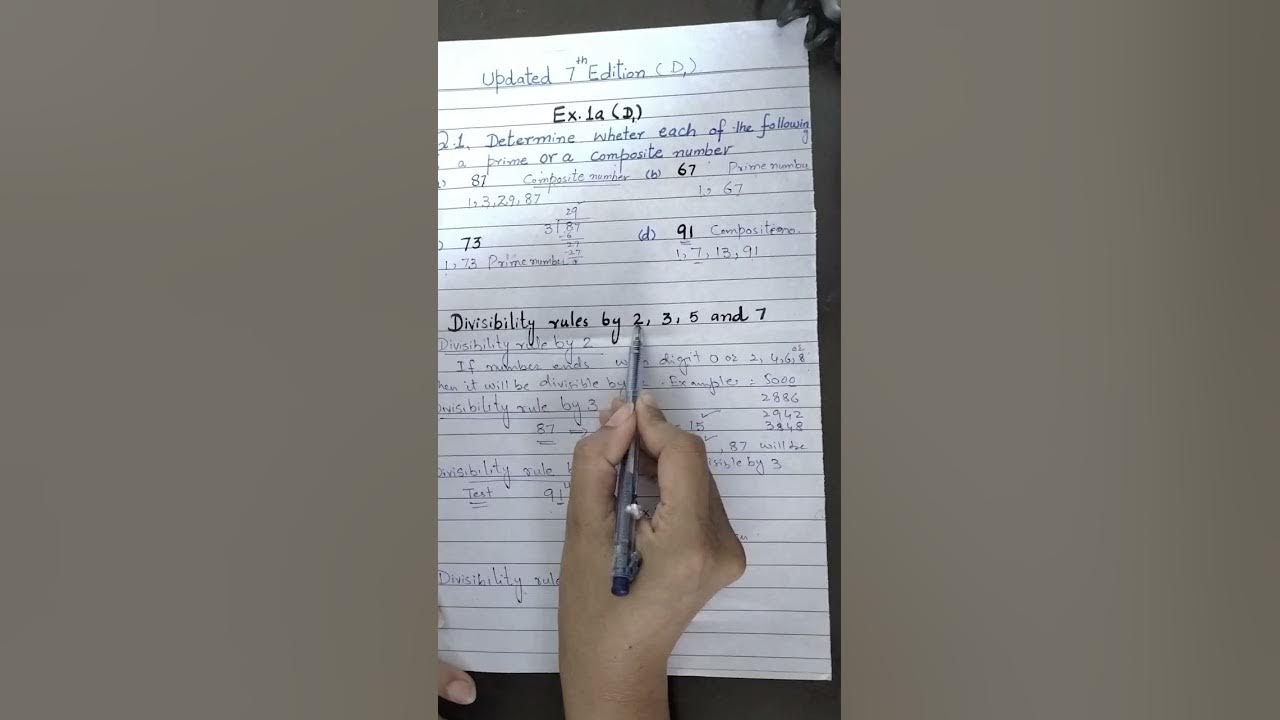 Updated 7th Edition (D1)
Ex. 1a (D1)
Q.1. Determine wheter each of the following
a prime or a composite number
87 Composite number (b) 67 Prime numbe
1, 3, 29, 87 1, 67
29
3 87
-6
73 27 (d) 91 Composite no.
-27
1, 73 Prime number 1, 7, 13, 91
Divisibility rules by 2, 3, 5 and 7
Divisibility rule by 2
If number ends digit 0 or 2, 4, 6, or 8
hen it will be divisible by Examples : 5000
2886
Divisibility rule by 3 2942
87 15 3848
, 87 will be
Divisibility rule isible by 3
Test 91
Divisibility rule